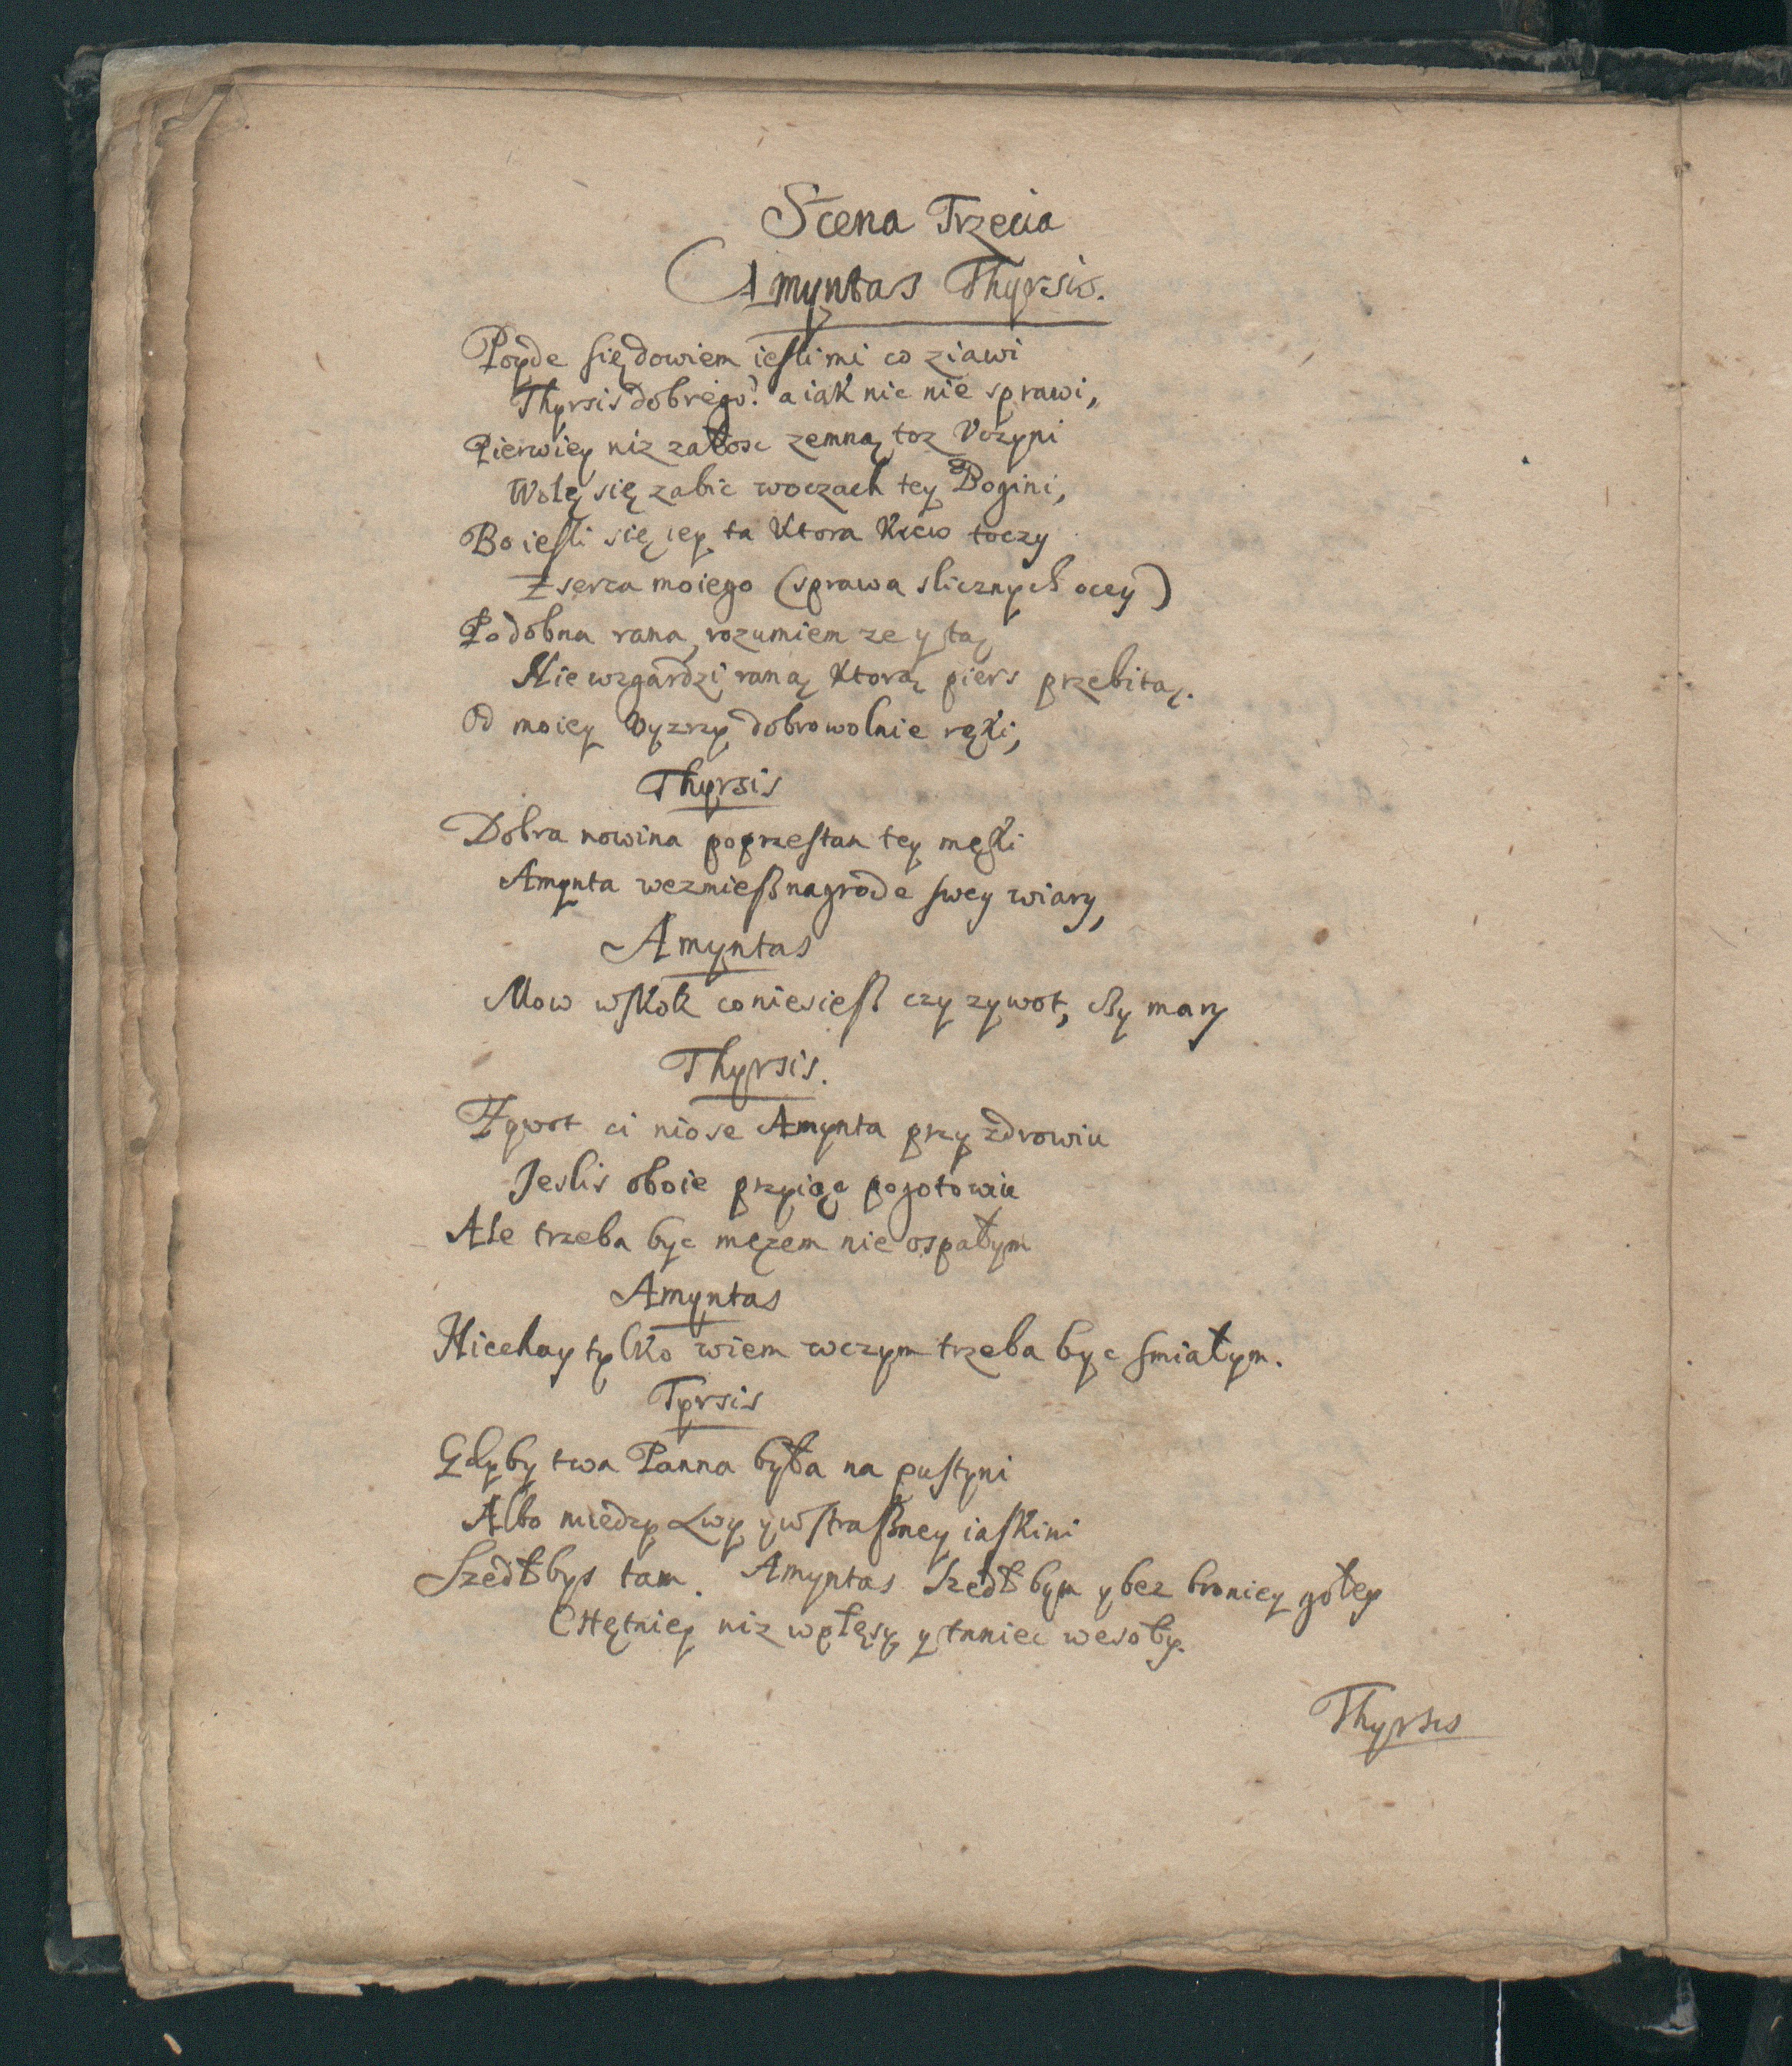 Scena Trzecia
Amyntas Thyrsis.
Poyde się dowiem ieſli mi co ziawi
Thyrsis dobrego? a iak nic nie sprawi,
Pierwiey niz załosc zemną toz Vczyni
Wolę się zabic woczach tey Bogini,
Bo ieſli się iey ta Ktora Krew toczy
Z serca moiego (sprawa slicznych oczy)
Podobna rana, rozumiem ze y tą
Nie wzgardzi raną Ktorą piers przebitą.
Od moiey Vyzrzy dobrowolnie ręki,
Thyrsis
Dobra nowina poprzeſtan tey męki
Amynta wezmieſz nagrode ſwey wiary,
Amyntas
Mow wſkok co niesieſz czy zywot, czy mary
Thyrsis.
Zywot ci niose Amynta przy zdrowiu
Jeslis oboie przyiąc pogotowiu
Ale trzeba byc męzem nie ospałym
Amyntas
Niechay tylko wiem wczym trzeba byc ſmiałym.
Tyrsis
Gdyby twa Panna była na puſtyni
Albo miedzy Lwy y wſtraſzney iaſkini
Szedłbys tam. Amyntas Szedłbym y bez broniey goły
CHętniey niz wpłęsy y taniec wesoły.
Thyrsis